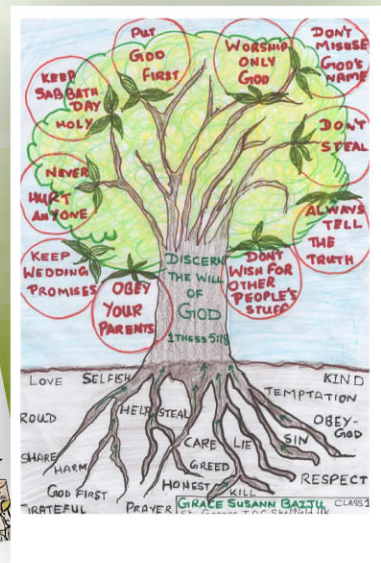 PUT
GOD
FIRST
WORSHIP
ONLY
GOD
DON'T
MISUSE
GOD'S
NAME
KEEP
SABBATH
DAY
HOLY
DON'T
STEAL
NEVER
HURT
ANYONE
ALWAYS
TELL
THE
TRUTH
KEEP
WEDDING
PROMISES
OBEY
YOUR
PARENTS
DISCERN
THE WILL
OF
GOD
1THESS 5:18
DON'T
WISH FOR
OTHER
PEOPLE'S
STUFF
LOVE SELFISH KIND
TEMPTATION
ROUD HELP STEAL OBEY-
GOD
SHARE CARE LIE SIN
HARM GREED
HONEST RESPECT
GOD FIRST KILL
PRAYER GRACE SUSANN BAIJU CLASS1